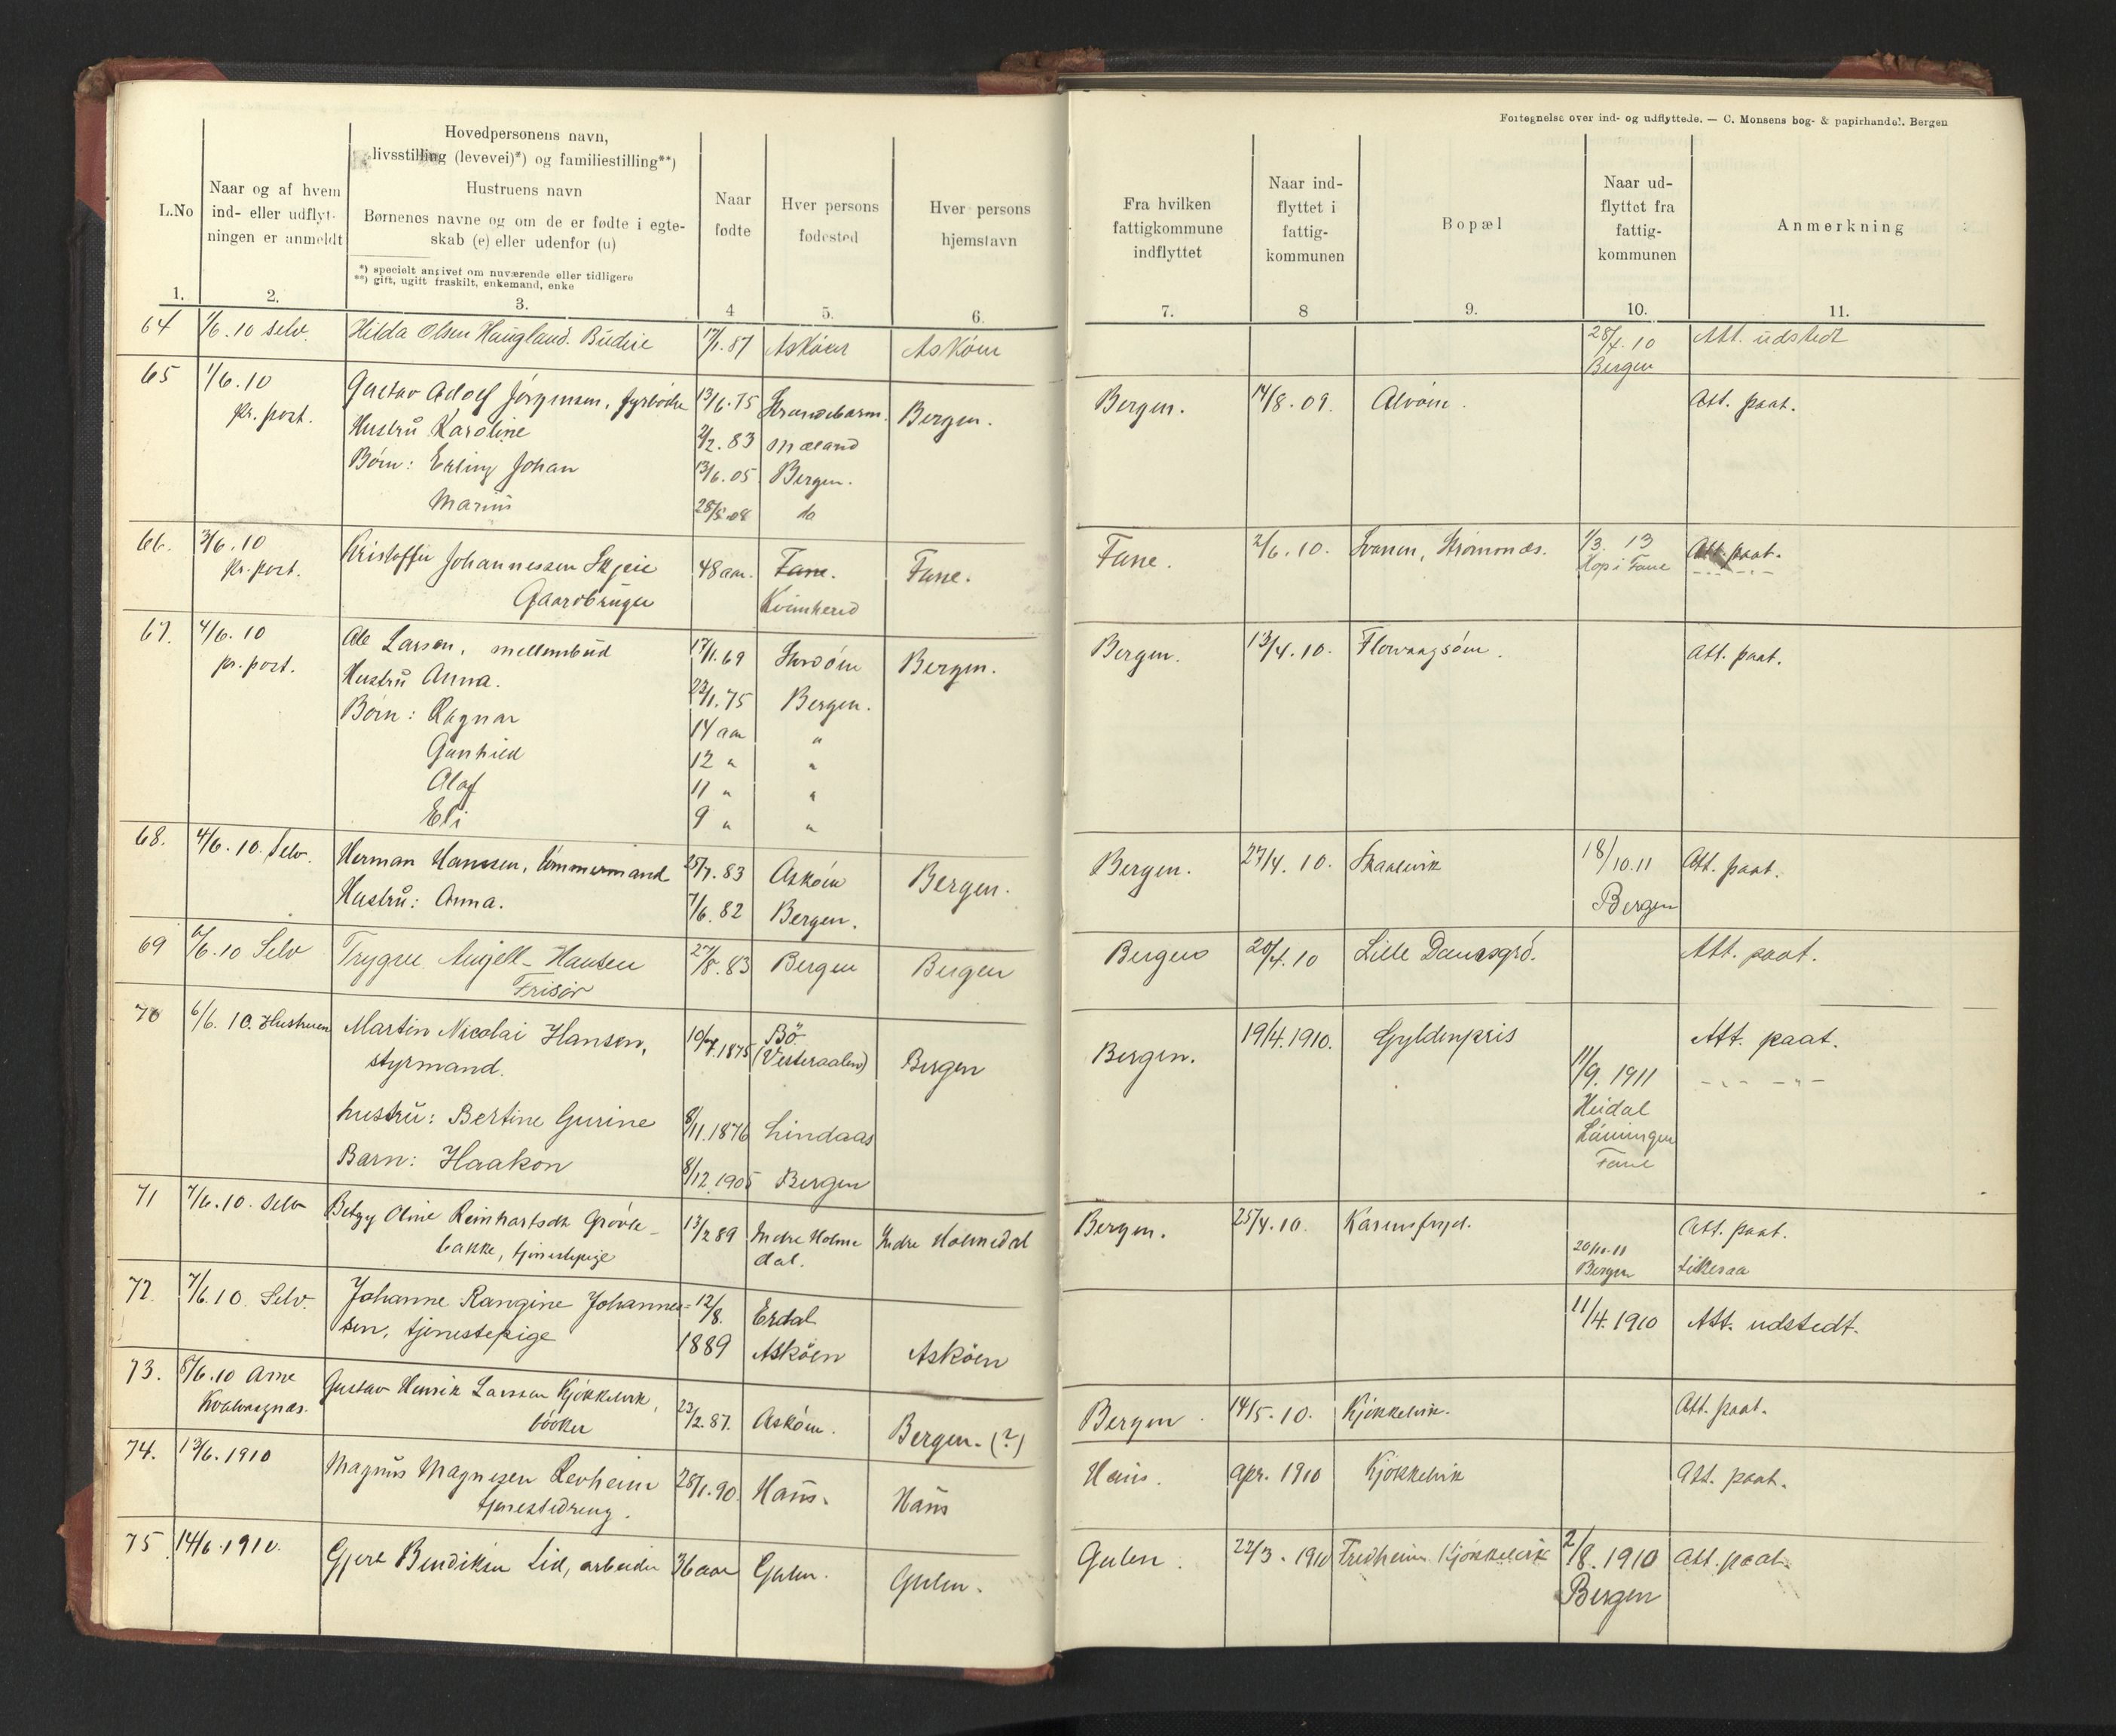 Fortegnelse over ind- og udflyttede. — C. Monsens bog- & papirhandel. Bergen
L.No
Naar og af hvem
ind- eller udflyt-
ningen er anmeldt
Hovedpersonens navn,
livsstilling (levevei)*) og familiestilling**)
Hustruens navn
Børnenes navne og om de er fødte i egte-
skab (e) eller udenfor (u)
*) specielt angivet om nuværende eller tidligere
**) gift, ugift fraskilt, enkemand, enke
Naar
fødte
Hver persons
fødested
Hver persons
hjemstavn
Fra hvilken
fattigkommune
indflyttet
Naar ind-
flyttet i
fattig-
kommunen
Bopæl
Naar ud-
flyttet fra
fattig-
kommunen
Anmerkning
1. 2. 3. 4 5. 6. 7. 8 9. 10. 11.
64 1/6.10 selv. Hilda Olsen Haugland. Budeie 17/1.87 Askøen Askøen 28/4.10 Att. udstedt
Bergen
65 1/6.10 Gustav Adolf Jørgensen, fyrbøder 13/6.75 Strandebarm. Bergen. Bergen. 14/8.09. Alvøen. Att. paat.
pr. post. Hustrü Karoline 2/2.83 Mæland
Børn: Erling Johan 13/6.05 Bergen.
Marius 28/5.08 do
66. 3/6.10 Kristoffer Johannessen Skjeie 48 aar. Fane. Fane. Fane. 2/6.10. Ivanen, Strømsnæs. 1/3. 13 Att. paat.
pr. post. Gaardbruger Kvindherred Hop i Fane
67. 4/6.10 Ole Larsen, mellembud 17/1.69 Størdøen Bergen. Bergen. 13/4.10. Florvaagsøen. Att. paat.
pr. post. Hustrü Anna. 22/1.75 Bergen.
Børn: Ragnar 14 aar "
Gunhild 12 " "
Olaf 11 " "
Eli 9 " "
68. 4/6.10. Selv. Herman Hanssen, tømmermand 25/7.83 Askøen Bergen. Bergen. 27/4.10. Skaalevik 18/10.11 Att. paat.
Hustrü: Anna. 7/6.82 Bergen. Bergen
69 6/6.10 Selv Trygve Angell-Hansen 27/8.83 Bergen Bergen Bergen 20/4.10 Lille Damsgrd. Att. paat.
Frisør
70 6/6.10. Hustruen Martin Nicolai Hansen, 10/7.1875 Bö Bergen Bergen. 19/4.1910. Gyldenpris Att. paat.
styrmand. (Vesteraalen) 11/9.1911
hustrü: Bertine Gurine 8/11.1876 Lindaas Heidal
Barn: Haakon 8/12.1905 Bergen Fane
71 7/6.10. selv Betzy Oline Reinhartsdtr Grovle- 13/2 89 Indre Holme Indre Holmedal Bergen. 25/4.10. Karensfryd. Att. paat.
bakke, tjenestepige dal. 20/10.11
Bergen
72. 7/6.10. Selv. Johanne Rangine Johannes- 12/8. Erdal 11/4.1910 Att. udstedt.
sen, tjenestepige 1889 Askøen Askøen
73. 8/6.10 Arne Gustav Henrik Larssen Kjøkkelvik, 23/2.87. Askøen. Bergen. (?) Bergen. 14/5.10. Kjøkkelvik. Att. paat.
Kvalvaagnes. bødker
74. 13/6.1910 Magnus Magnesen Revheim 28/1.90. Haus. Haus Haus. Apr. 1910 Kjøkkelvik Att. paat.
tjenestedreng.
75 14/6.1910. Gjert Bendiksen Lid, arbeider 36 aar Gulen. Gulen. Gulen. 22/3.1910 Fredheim Kjøkkelvik 2/8.1910 Att. paat.
Bergen